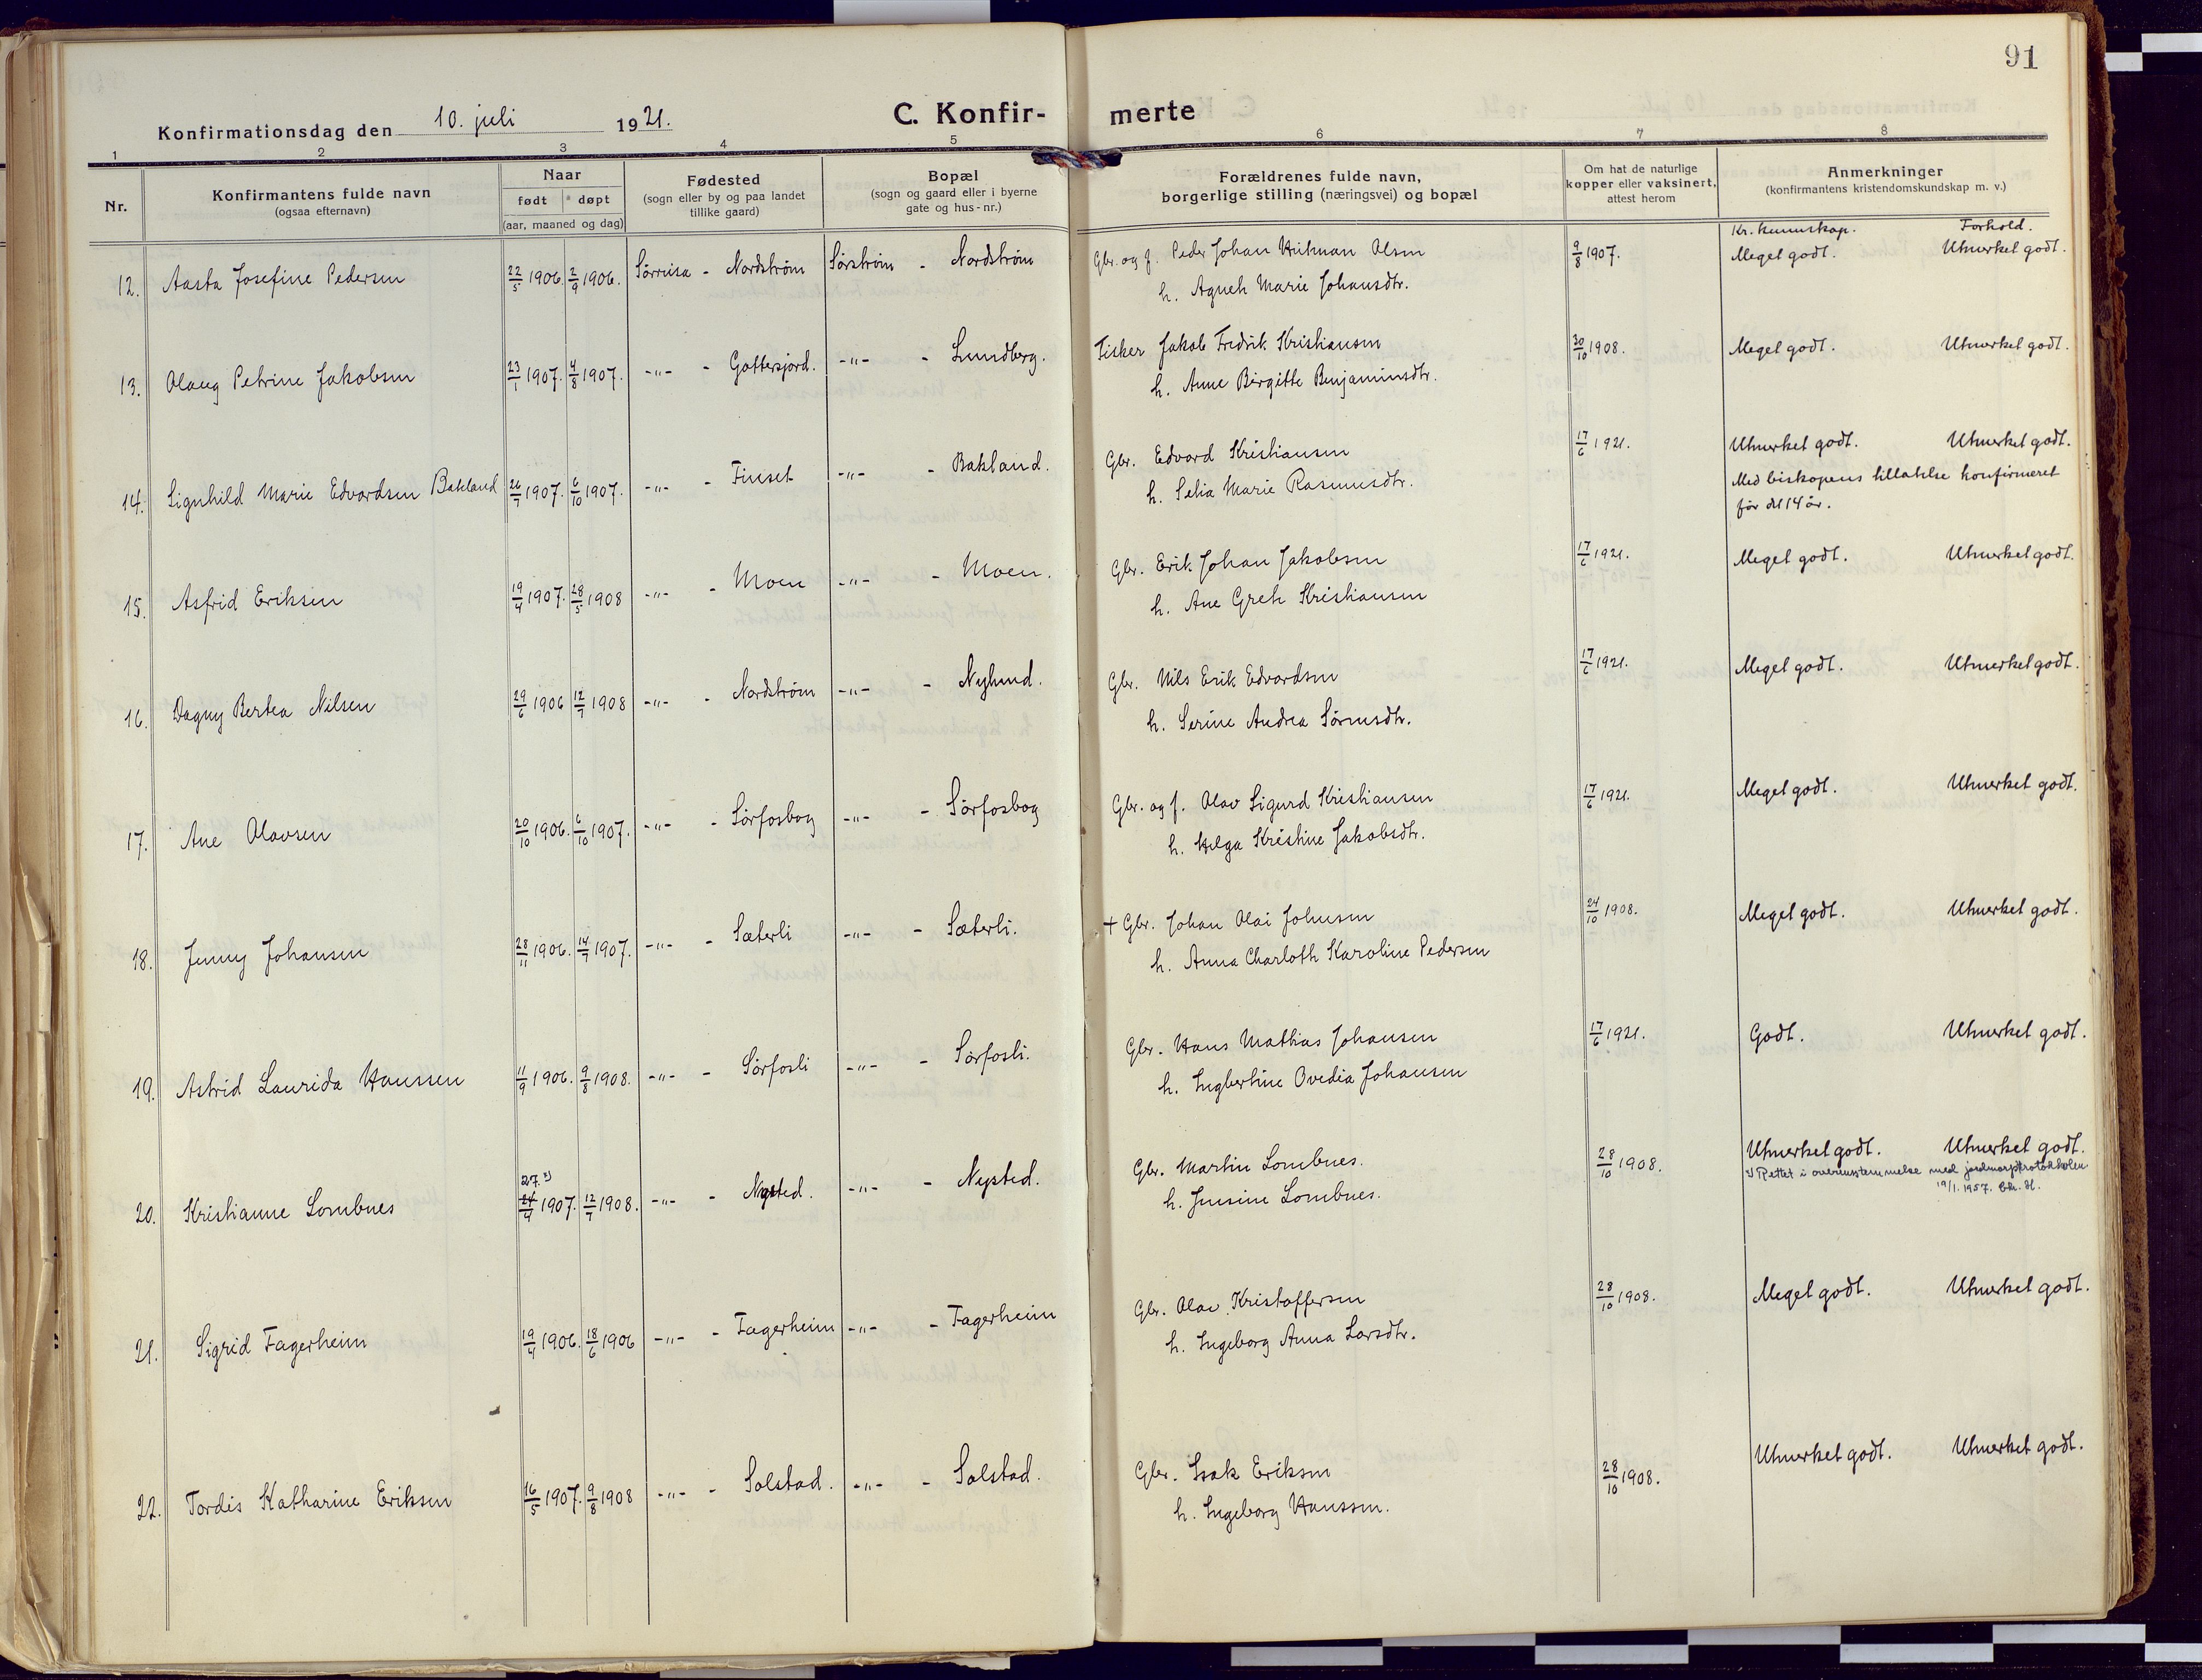 91
Konfirmationsdag den 10. juli 1921.
C. Konfir- merte
1 2 3 4 5 6 7 8
Nr.
Konfirmantens fulde navn
(ogsaa efternavn)
Naar
født døpt
(aar, maaned og dag)
Fødested
(sogn eller by og paa landet
tillike gaard)
Bopæl
(sogn og gaard eller i byerne
gate og hus-nr.)
Forældrenes fulde navn,
borgerlige stilling (næringsvei) og bopæl
Om hat de naturlige
kopper eller vaksinert,
attest herom
Anmerkninger
(konfirmantens kristendomskundskap m. v.)
Kr. kunnskap. Forhold.
12. Aasta Josefine Pedersen 22/5 1906. 2/9 1906. Sørreisa - Nordstrøm Sørstrøm - Nordstrøm Gbr. og f. Peder Johan Olsen 9/8 1907. Meget godt. Utmerket godt.
h. Agnete Marie Johansdtr.
13. Olaug Petrine Jakobsen 23/1 1907. 4/8 1907. -"- - Gottesjord. -"- - Lundberg. Fisker Jakob Fredrik Kristiansen 20/10 1908. Meget godt. Utmerket godt.
h. Anne Birgitte Benjaminsdtr.
14. Signhild Marie Edvardsen Bakland 26/7 1907. 6/10 1907. -"- - Finset -"- - Bakland. Gbr. Edvard Kristiansen 17/6 1921. Utmerket godt. Utmerket godt.
h. Selia Marie Rasmusdtr. Med biskopens tillatelse konfirmeret
før det 14 år.
15. Asfrid Eriksen 19/4 1907. 28/5 1908 -"- - Moen -"- - Moen. Gbr. Erik Johan Jakobsen 17/6 1921. Meget godt. Utmerket godt.
h. Ane Grete Kristiansen
16. Dagny Bertea Nilsen 29/6 1906 12/7 1908 -"- - Nordstrøm -"- - Nylund. Gbr. Nils Erik Edvardsen 17/6 1921. Meget godt. Utmerket godt.
h. Serine Andrea Sørensdtr.
17. Ane Olavsen 20/10 1906. 6/10 1907. -"- - Sørfosbog -"- - Sørfosbog Gbr. og f. Olav Sigurd Kristiansen 17/6 1921. Meget godt. Utmerket godt.
h. Helga Kristine Jakobsdtr.
18. Jenny Johansen 28/11 1906. 14/7 1907. -"- - Sæterli -"- - Sæterli. + Gbr. Johan Olai Johnsen 24/10 1908. Meget godt. Utmerket godt.
h. Anna Charloth Karoline Pedersen
19. Astrid Laurida Hanssen 11/9 1906. 9/8 1908. -"- - Sørfosli -"- - Sørfosli. Gbr. Hans Mathias Johansen 17/6 1921. Godt. Utmerket godt.
h. Ingbertine Ovedia Johansen
27. x)
20. Kristianne Lombnes 24/4 1907. 12/7 1908. -"- - Nysted. -"- - Nysted. Gbr. Martin Lombnes. 28/10 1908. Utmerket godt. Utmerket godt.
h. Jensine Lombnes. x) Rettet i overensstemmelse med jordmorprotokollen
19/1. 1957.
21. Sigrid Fagerheim 19/4 1906. 18/6 1906 -"- - Fagerheim -"- - Fagerheim Gbr. Olav Kristoffersen 28/10 1908. Meget godt. Utmerket godt.
h. Ingeborg Anna Larsdtr.
22. Tordis Katharine Eriksen 16/5 1907. 9/8 1908 -"- - Solstad. -"- - Solstad. Gbr. Isak Eriksen 28/10 1908. Utmerket godt. Utmerket godt.
h. Ingeborg Hanssen.